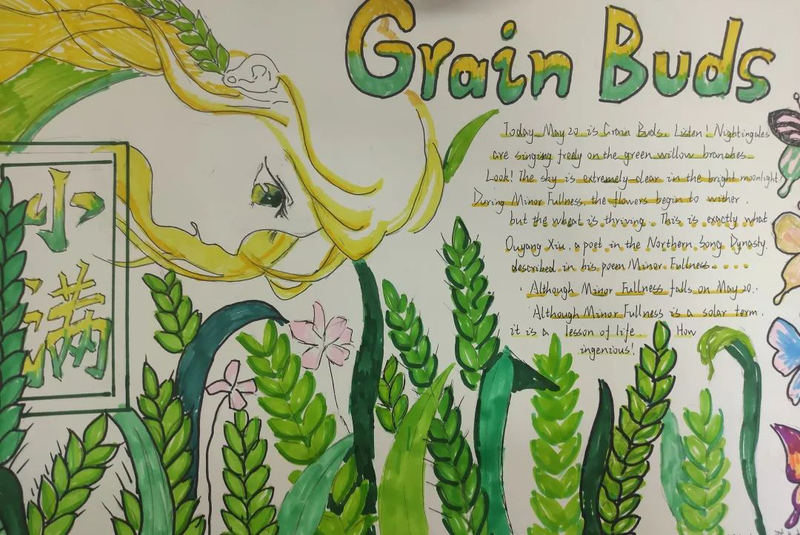 Grain Buds
小满
Today, May 20 is Grain Buds. Listen! Nightingales
are singing freely on the green willow branches.
Look! The sky is extremely clear in the bright moonlight.
During Minor Fullness the flowers begin to wither,
but the wheat is thriving. This is exactly what
Ouyang Xiu, a poet in the Northern Song Dynasty,
described in his poem Minor Fullness....
Although Minor Fullness falls on May 20.
Although Minor Fullness is a solar term,
it is a lesson of life. How
ingenious!